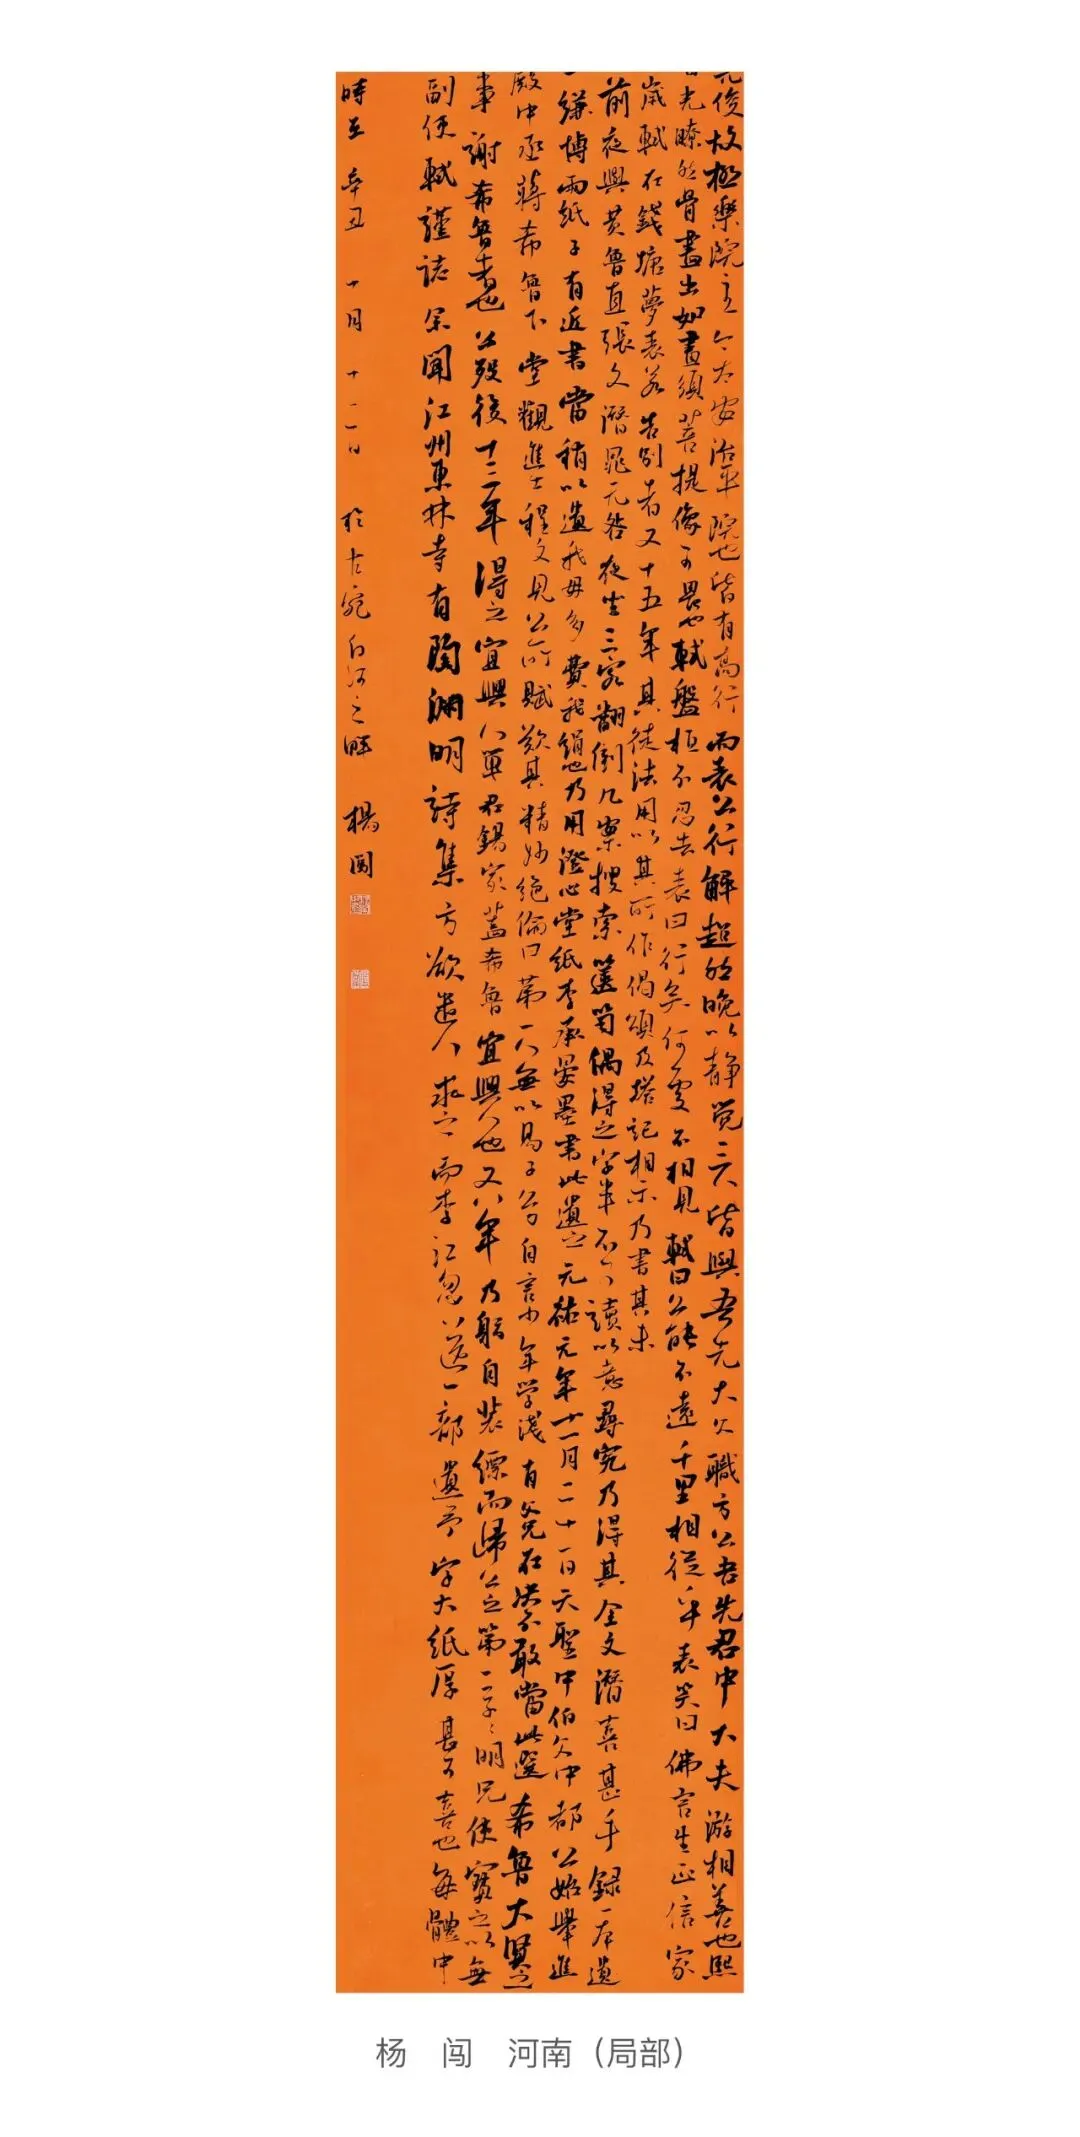 俊故極樂院主今太安治平院也皆有高行而表公行解超然晚以静覺三人皆與吾先大父職方公吾先君中大夫游相善也熙
光瞭然骨盡出如畫須菩提像可畏也軾盤桓不忍去表曰行矣何處不相見軾曰公能不遠千里相從乎表笑曰佛言生正信家
歲軾在錢塘夢表若告別者又十五年其徒法用以其所作偈頌及塔記相示乃書其末
前夜與黃魯直張文潛晁无咎夜坐三客翻倒几案搜索篋笥偶得之字半不可讀以意尋究乃得其全文潛喜甚手録一本遺
一縑博兩紙子有近書當稍以遺我毋多費我絹也乃用澄心堂紙李承晏墨書此遺之元祐元年十一月二十一日天聖中伯父中都公始舉進
殿中丞蔣希魯下堂觀進士程文見公所賦歎其精妙絕倫曰第一人無以易子公自言少年学淺有父兄在決不敢當此選希魯大賢之
事謝希魯者也公歿後十三年得之宜興人單君錫家蓋希魯宜興人也又八年乃躬自装縹而歸公之第二子子明兄使寶之以無
副使軾謹誌余聞江州東林寺有陶淵明詩集方欲遣人求之而李江忽送一部遺予字大紙厚甚可喜也每體中
時在辛丑十月十二日於古宛白河之畔楊闖
杨 闯 河南（局部）